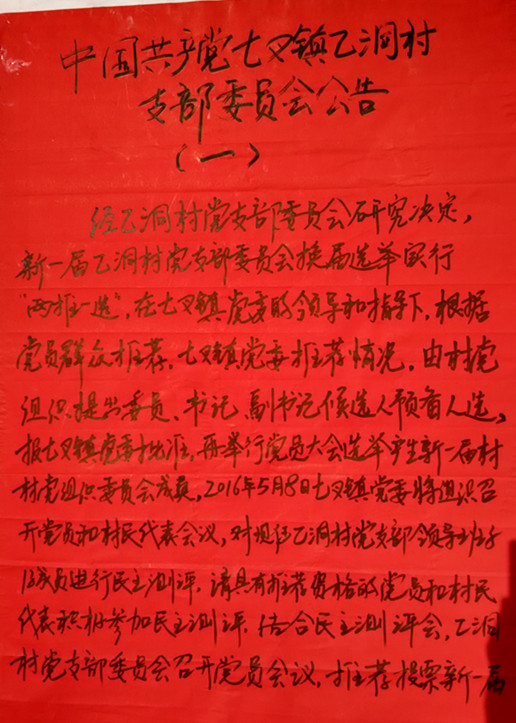 中国共产党七叉镇乙洞村
支部委员会公告
（一）
经乙洞村党支部委员会研究决定，
新一届乙洞村党支部委员会换届选举实行
“两推一选”，在七叉镇党委的领导和指导下，根据
党员群众推荐，七叉镇党委推荐情况，由村党
组织提出委员、书记、副书记候选人预备人选，
报七叉镇党委批准，再举行党员大会选举产生新一届村
村党组织委员会成员，2016年5月8日七叉镇党委将组织召
开党员和村民代表会议，对现任乙洞村党支部领导班子
成员进行民主测评，请具有推荐资格的党员和村民
代表积极参加民主测评，结合民主测评会，乙洞
村党支部委员会召开党员会议，推荐投票新一届